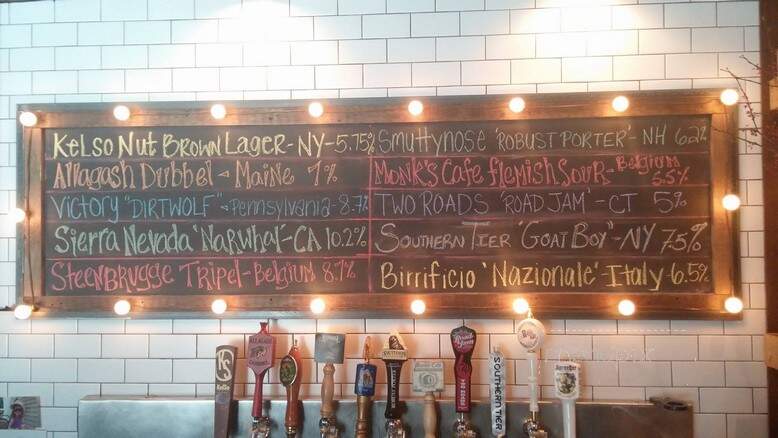 Kelso Nut Brown Lager - NY - 5.75%
Allagash Dubbel - Maine 7%
Victory "DIRTWOLF" - Pennsylvania - 8.7%
Sierra Nevada 'Narwhal' - CA 10.2%
Steenbrugge Tripel - Belgium 8.7%
Smuttynose 'ROBUST PORTER' - NH 6.2%
Monk's Cafe Flemish Sour - Belgium 5.5%
TWO ROADS 'ROAD JAM' - CT 5%
Southern Tier 'Goat Boy' - NY 7.5%
Birrificio 'Nazionale' Italy - 6.5%
KelSo
SOUTHERN TIER